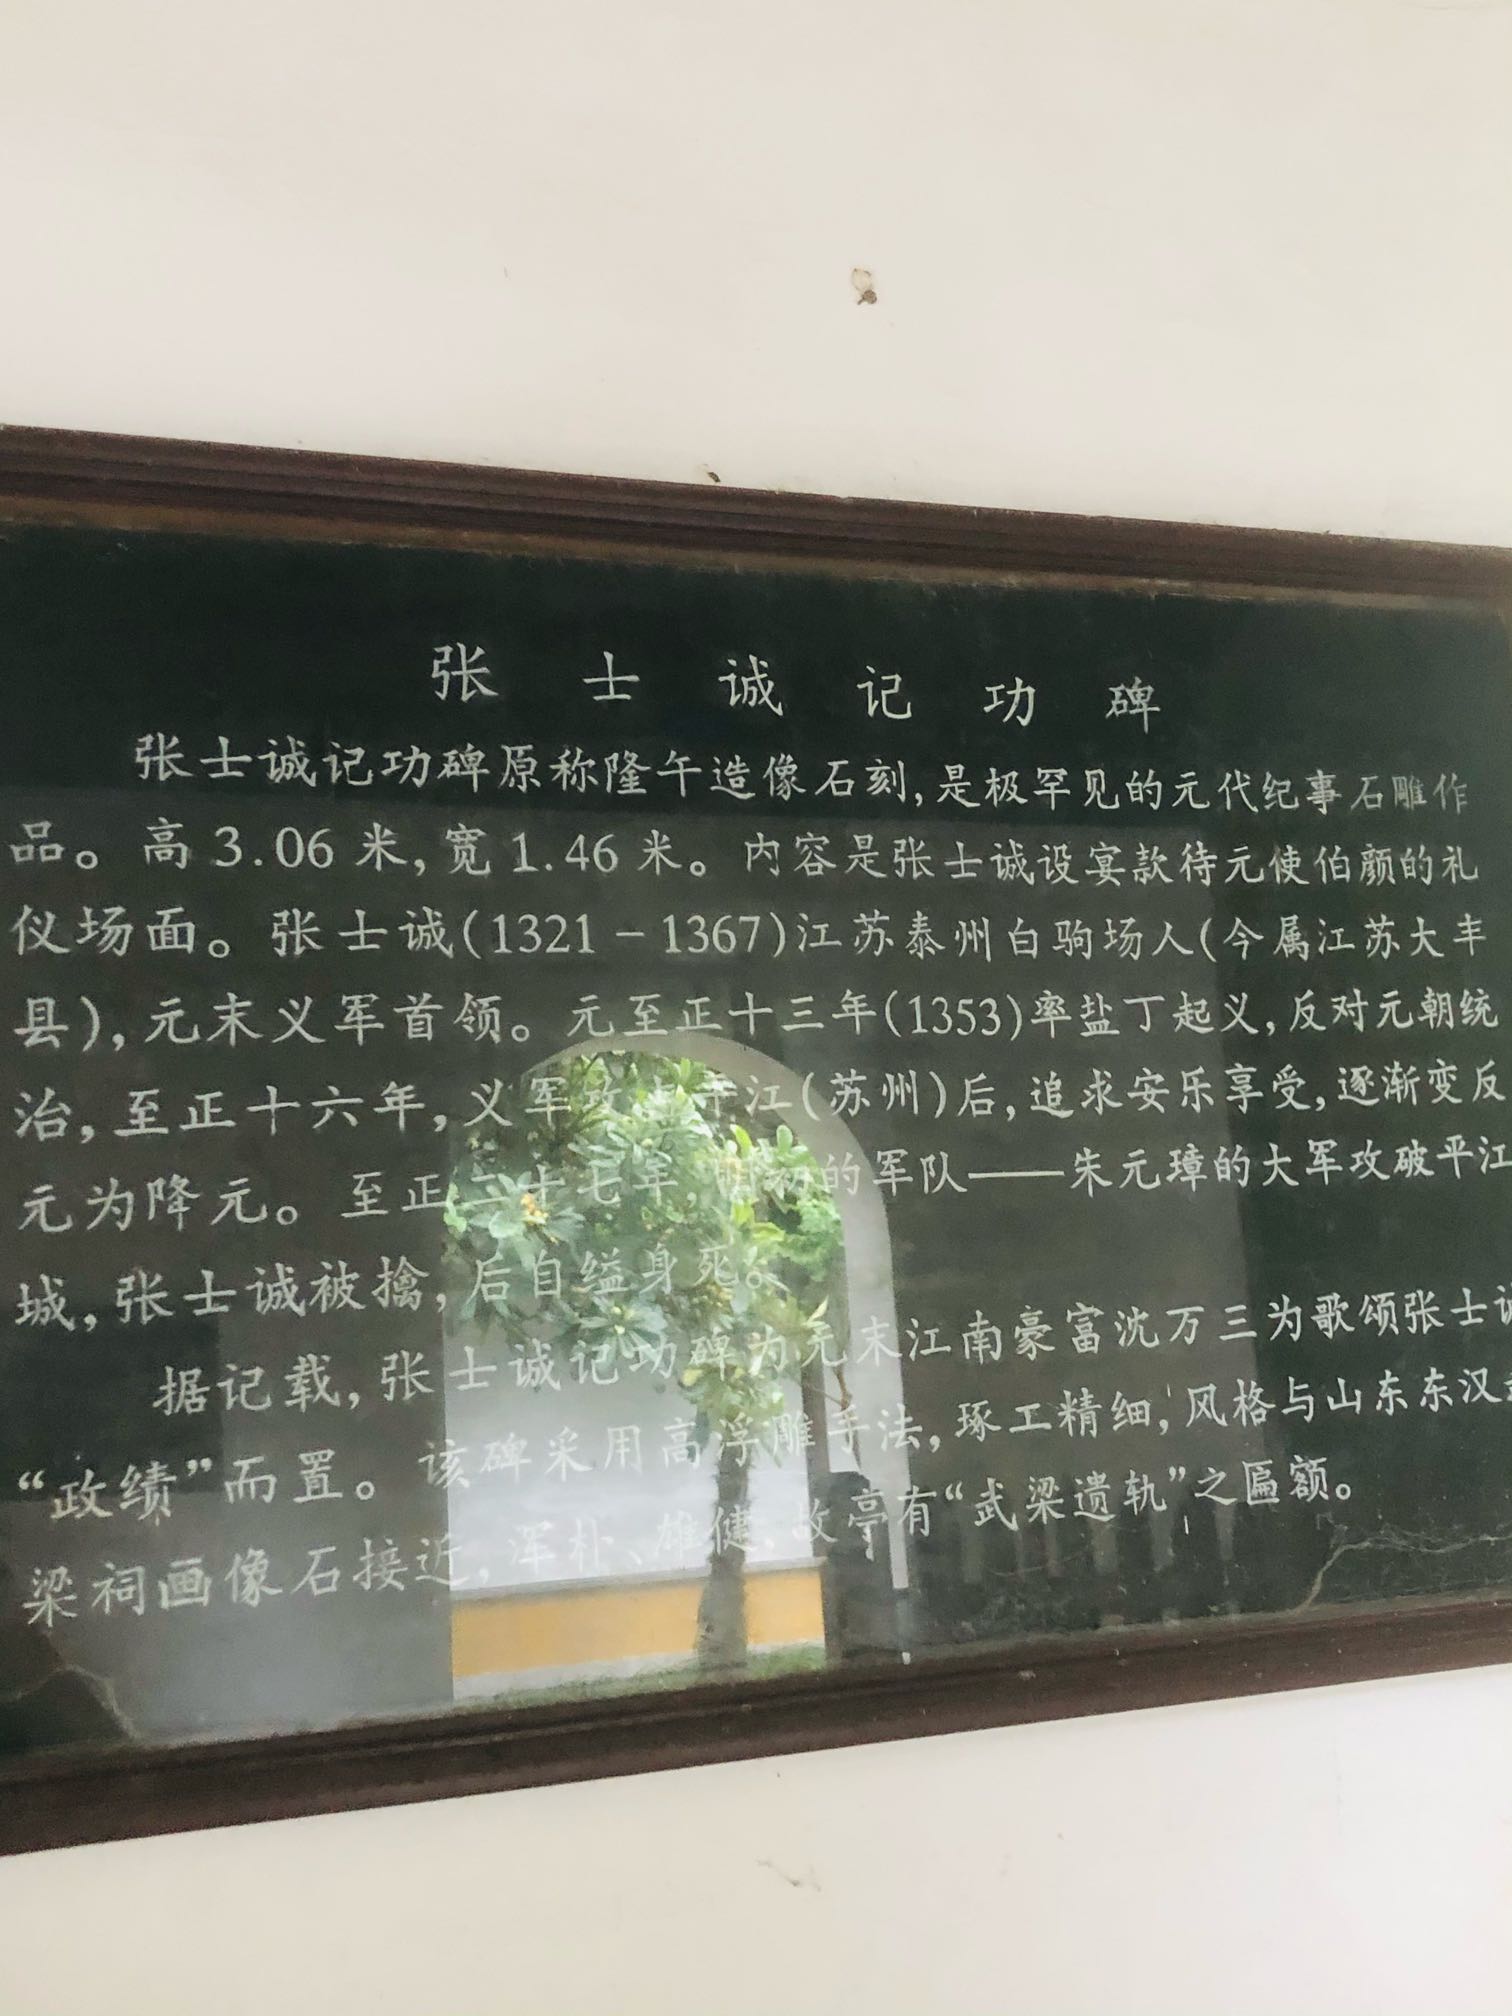 张士诚记功碑
张士诚记功碑原称隆午造像石刻,是极罕见的元代纪事石雕作
品。高3.06米,宽1.46米。内容是张士诚设宴款待元使伯颜的礼
仪场面。张士诚(1321-1367)江苏泰州白驹场人(今属江苏大丰
县),元末义军首领。元至正十三年(1353)率盐丁起义,反对元朝统
治,至正十六年,义军攻占平江(苏州)后,追求安乐享受,逐渐变反
元为降元。至正二十七年,明初的军队——朱元璋的大军攻破平江
城,张士诚被擒,后自缢身死。
据记载,张士诚记功碑为元末江南豪富沈万三为歌颂张士诚
“政绩”而置。该碑采用高浮雕手法,琢工精细,风格与山东东汉
梁祠画像石接近,浑朴、雄健,故亭有“武梁遗轨”之匾额。